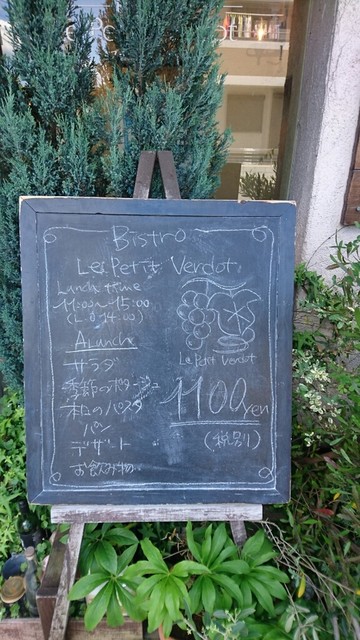 Bistro
Le Petit Verdot
Lunch time
11:00AM~15:00
(L.O 14:00)
Le Petit Verdot
A Lunch
サラダ
季節のポタージュ
和のパスタ
パン
デザート
お飲み物
1100yen
(税別)